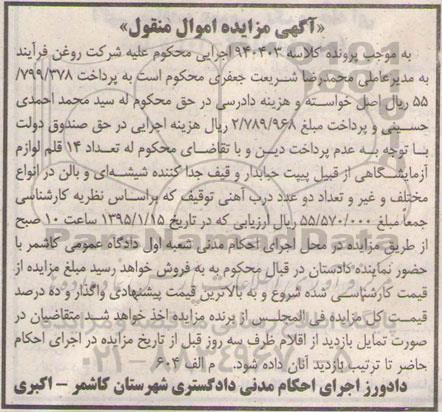 «آگهی مزایده اموال منقول»
به موجب پرونده کلاسه ۹۴۰۴۰۳ اجرایی محکوم علیه شرکت روغن فرآیند
به مدیرعاملی محمدرضا شریعت جعفری محکوم است به پرداخت ۷۹۹/۳۷۸/
۵۵ ریال اصل خواسته و هزینه دادرسی در حق محکوم له سید محمد احمدی
حسینی و پرداخت مبلغ ۲/۷۸۹/۹۶۸ ریال هزینه اجرایی در حق صندوق دولت
با توجه به عدم پرداخت دین و با تقاضای محکوم له تعداد ۱۴ قلم لوازم
آزمایشگاهی از قبیل پیپت حبابدار و قیف جدا کننده شیشه‌ای و بالن در انواع
مختلف و غیر و تعداد دو عدد درب آهنی توقیف که براساس نظریه کارشناسی
جمعاً مبلغ ۵۵/۵۷۰/۰۰۰ ریال ارزیابی که در تاریخ ۱۳۹۵/۱/۱۵ ساعت ۱۰ صبح
از طریق مزایده در محل اجرای احکام مدنی شعبه اول دادگاه عمومی کاشمر با
حضور نماینده دادستان در قبال محکوم به به فروش خواهد رسید مبلغ مزایده از
قیمت کارشناسی شده شروع و به بالاترین قیمت پیشنهادی واگذار و ده درصد
قیمت کل مزایده فی المجلس از برنده مزایده اخذ خواهد شد متقاضیان در
صورت تمایل بازدید از اقلام ظرف سه روز قبل از تاریخ مزایده در اجرای احکام
حاضر تا ترتیب بازدید آنان داده شود. م الف ۶۰۴
دادورز اجرای احکام مدنی دادگستری شهرستان کاشمر - اکبری